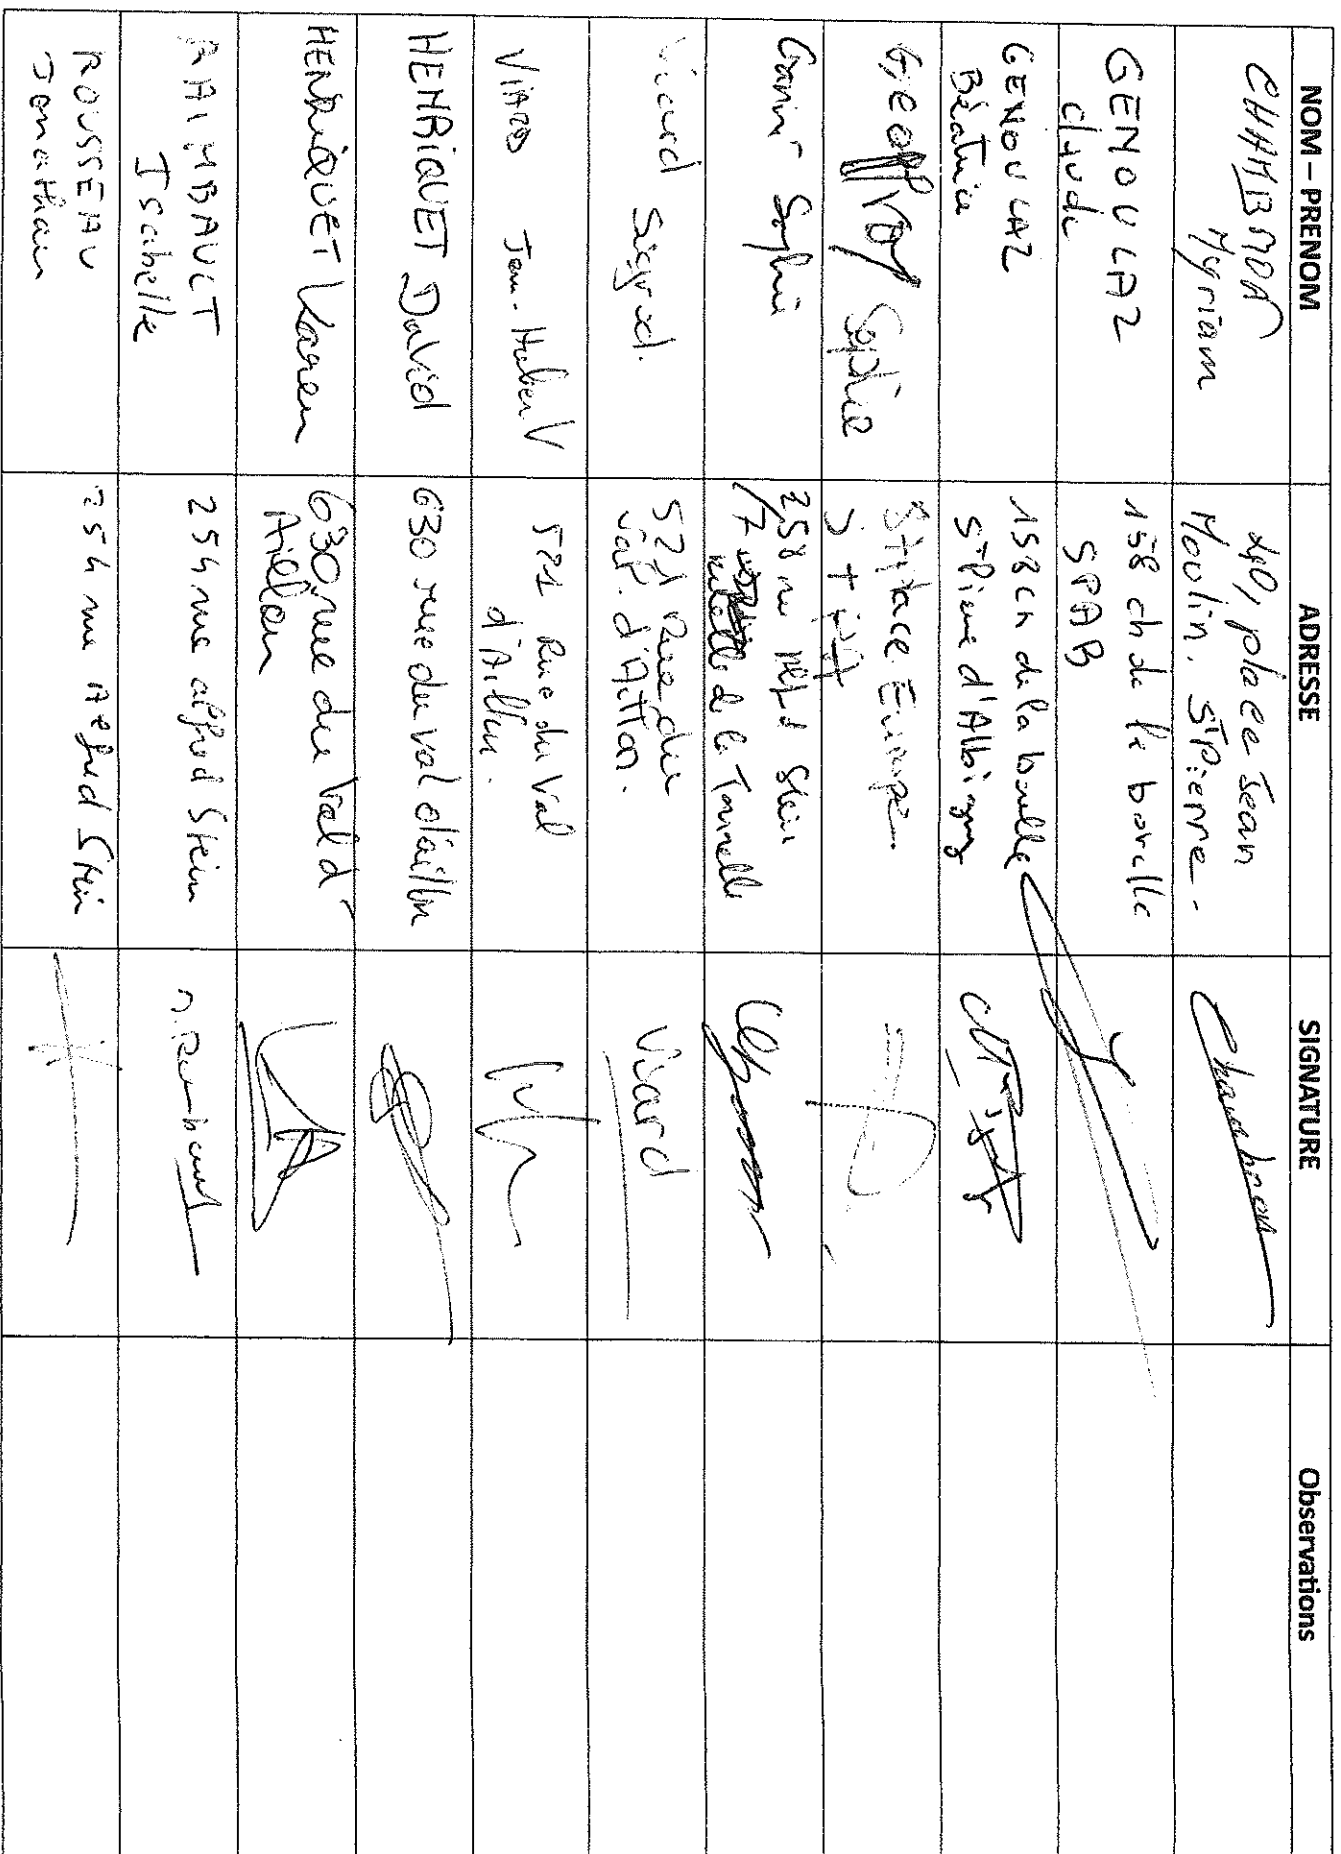 NOM – PRENOM ADRESSE SIGNATURE Observations
Myriam
40, place Jean
Moulin. St Pierre.
GENOULAZ
Claude
158 ch de la
SPAB
GENOULAZ
Béatrice
158 ch de la
St Pierre d'Albigny
Geoffroy Sophie
Place Europe
Sophie
258 rue Stein
de la Tournelle
Viard
521 Rue du
Val d'Aillon.
Viard
VIARD Jean-Hubert
521 Rue du Val
d'Aillon.
HENRIQUET David
630 rue du val d'aillon
HENRIQUET Karen
630, rue du Val d'
Aillon
RAIMBAULT
Isabelle
254 rue alfred Stein
ROUSSEAU
Jonathan
254 rue Alfred Stein